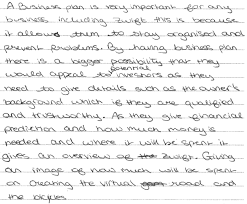 A Business plan is very important for any
business including Zwift this is because
it allows them to stay organised and
prevent problems. By having business plan
there is a bigger possibility that they
would appeal to potential investors as they
need to give details such as the owner's
background which if they are qualified
and trustworthy. As they give financial
prediction and how much money is
needed and where it will be spent it
gives an overview of the Zwift. Giving
an image of how much will be spent
on creating the virtual road and
the bicycles